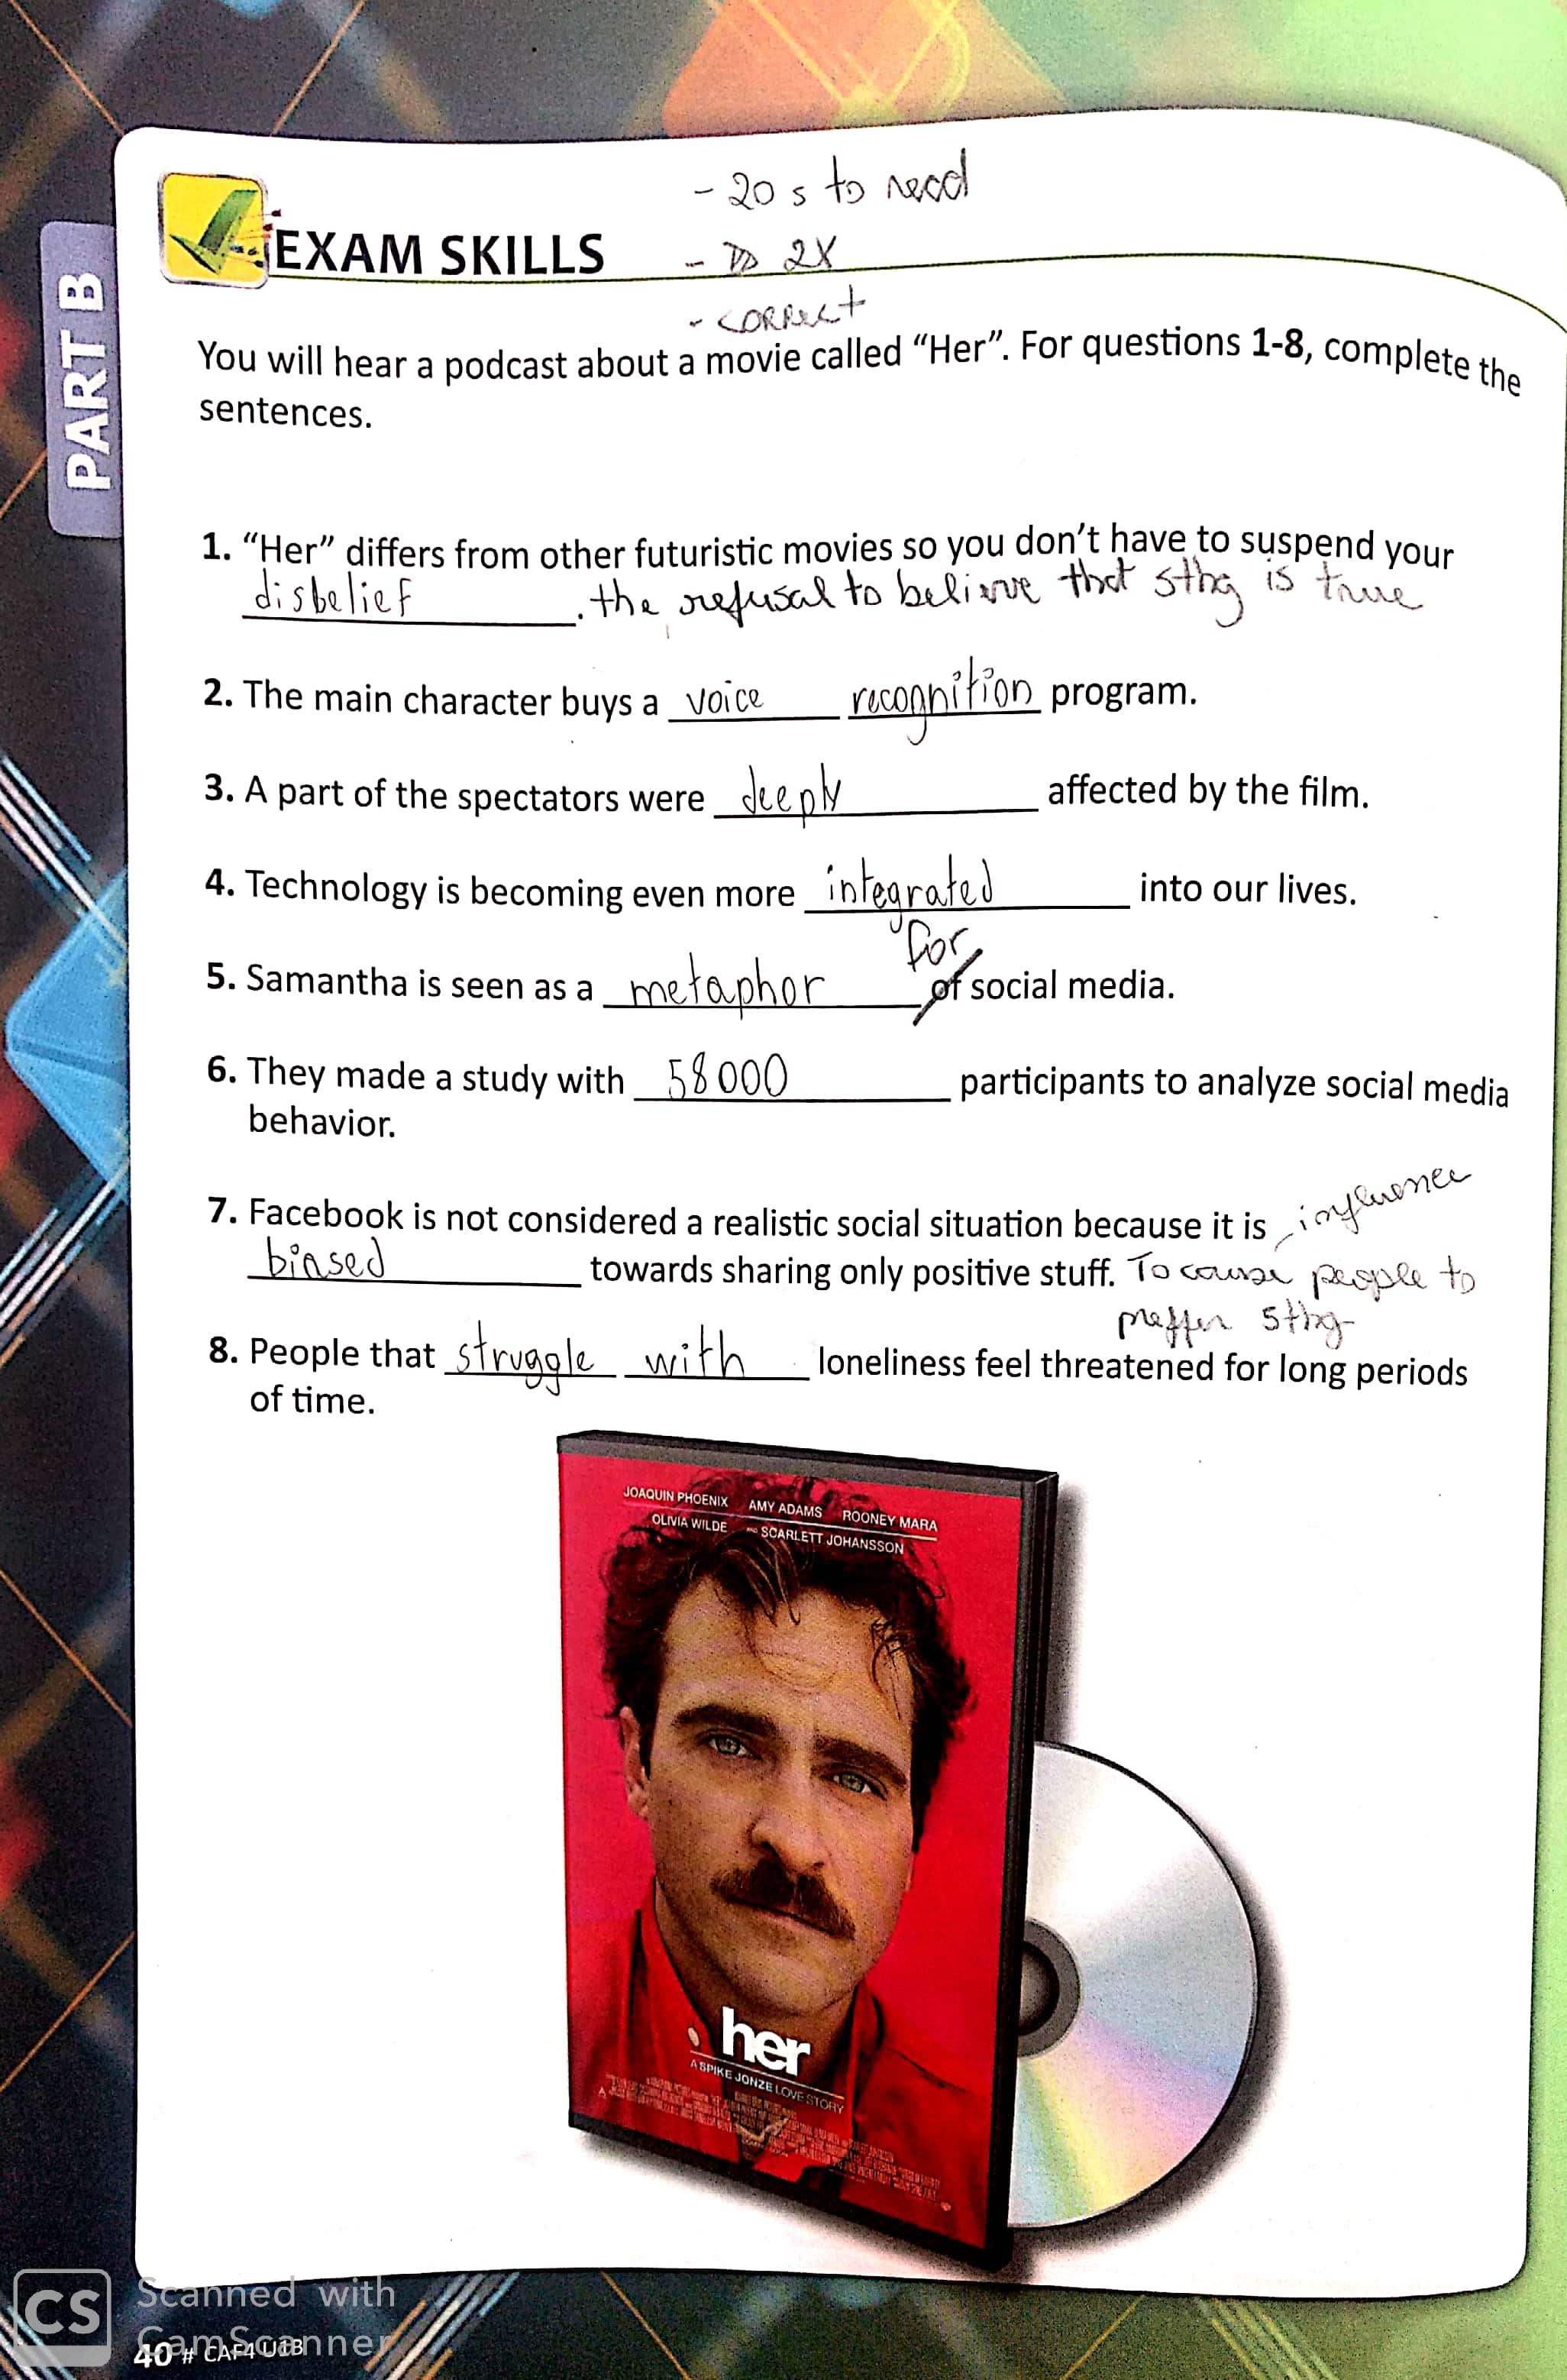 - 20 s to read
PART B
EXAM SKILLS
- 2X
- correct
You will hear a podcast about a movie called “Her”. For questions 1-8, complete the
sentences.
1. “Her” differs from other futuristic movies so you don’t have to suspend your
disbelief. the refusal to believe that sthg is true
2. The main character buys a voice recognition program.
3. A part of the spectators were deeply affected by the film.
4. Technology is becoming even more integrated into our lives.
for
5. Samantha is seen as a metaphor of social media.
6. They made a study with 58000 participants to analyze social media
behavior.
7. Facebook is not considered a realistic social situation because it is influence
biased towards sharing only positive stuff. To cause people to
preffer sthg
8. People that struggle with loneliness feel threatened for long periods
of time.
JOAQUIN PHOENIX AMY ADAMS ROONEY MARA
OLIVIA WILDE AND SCARLETT JOHANSSON
her
A SPIKE JONZE LOVE STORY
CS Scanned with
CamScanner
40 # CAF4 U1B